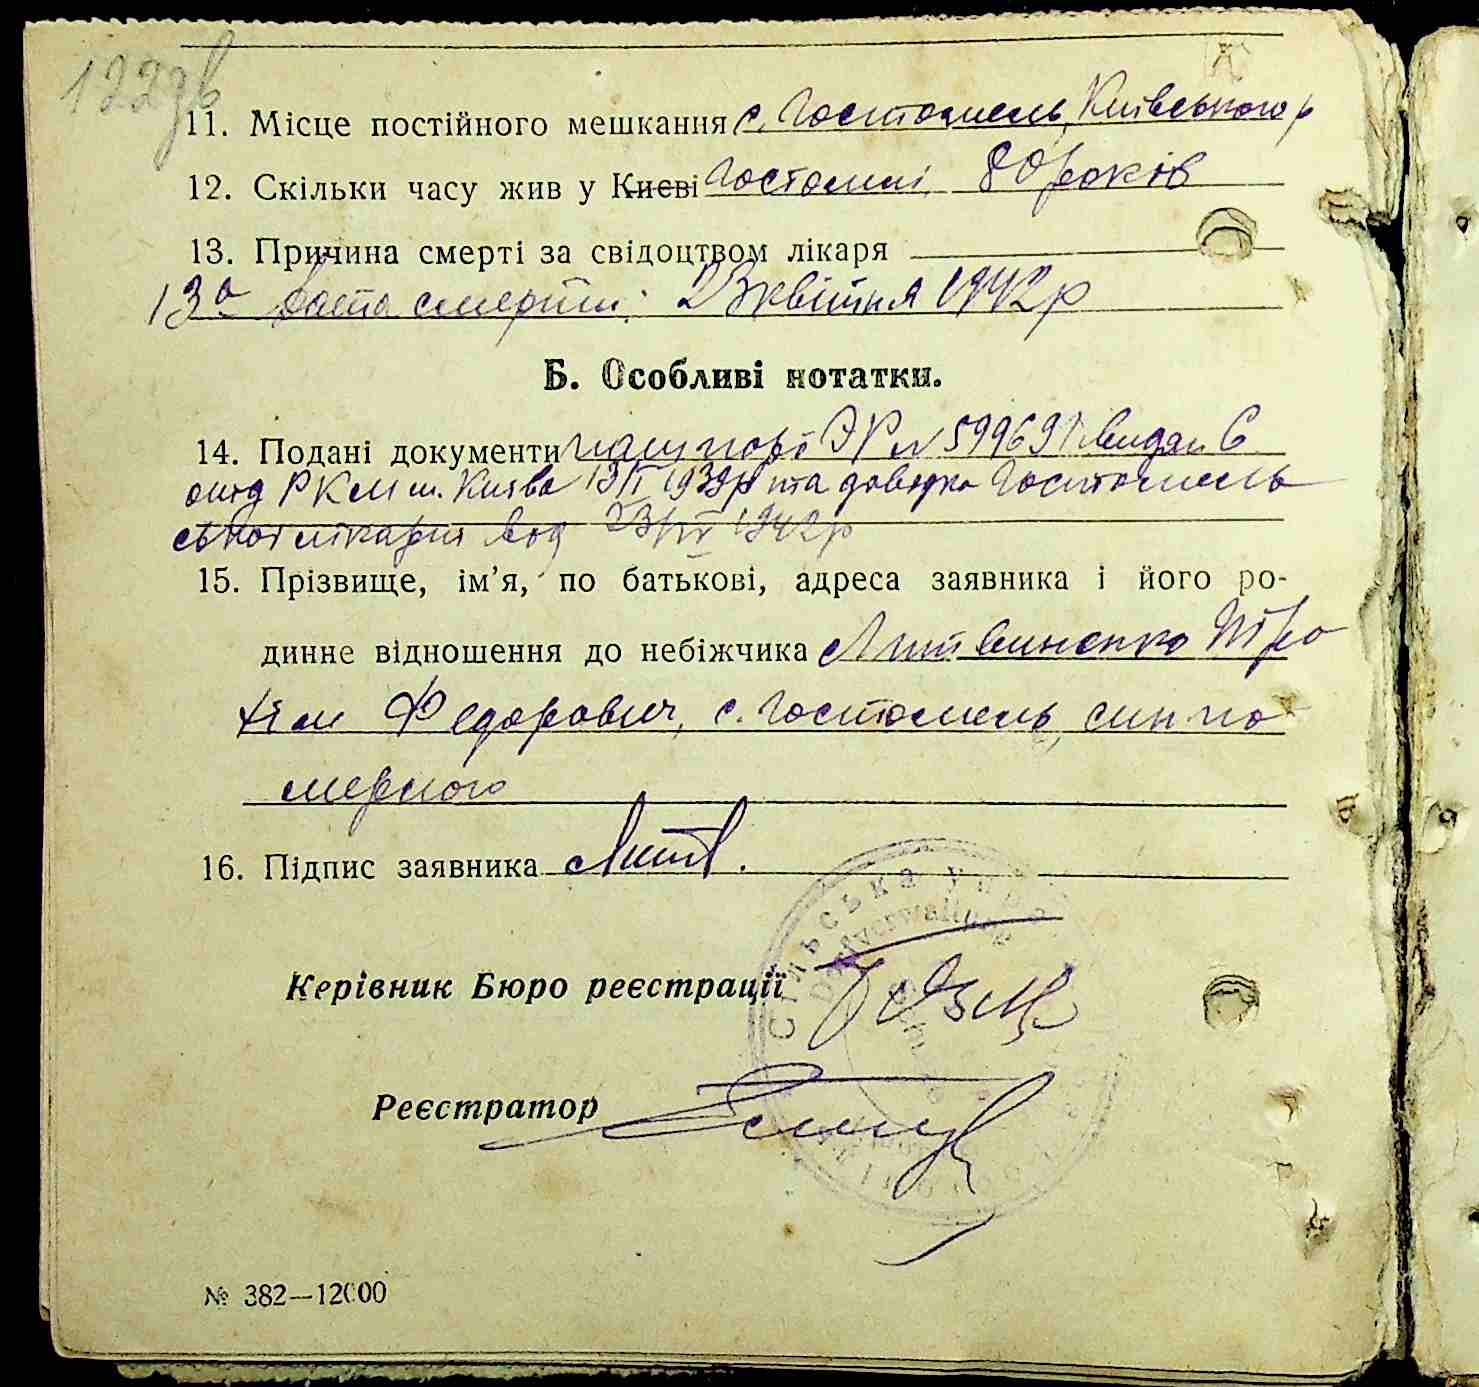 122зв
11. Місце постійного мешкання с. Гостомель, Київського р
12. Скільки часу жив у Києві Гостомлі 80 років
13. Причина смерті за свідоцтвом лікаря
13а Дата смерти: 23 квітня 1942р
Б. Особливі нотатки.
14. Подані документи пашпорт ЭР № 599691 видан 6
отд РКМ м. Києва 13/II 1939р та довідка Гостомель
ської лікарні від 23/IV 1942р
15. Прізвище, ім’я, по батькові, адреса заявника і його ро-
динне відношення до небіжчика Литвиненко Тро
хим Федорович, с. Гостомель, син по
мерлого
16. Підпис заявника Литв.
СІЛЬСЬКА
Dorfverwaltung
Керівник Бюро реєстрації
Реєстратор
№ 382—12000